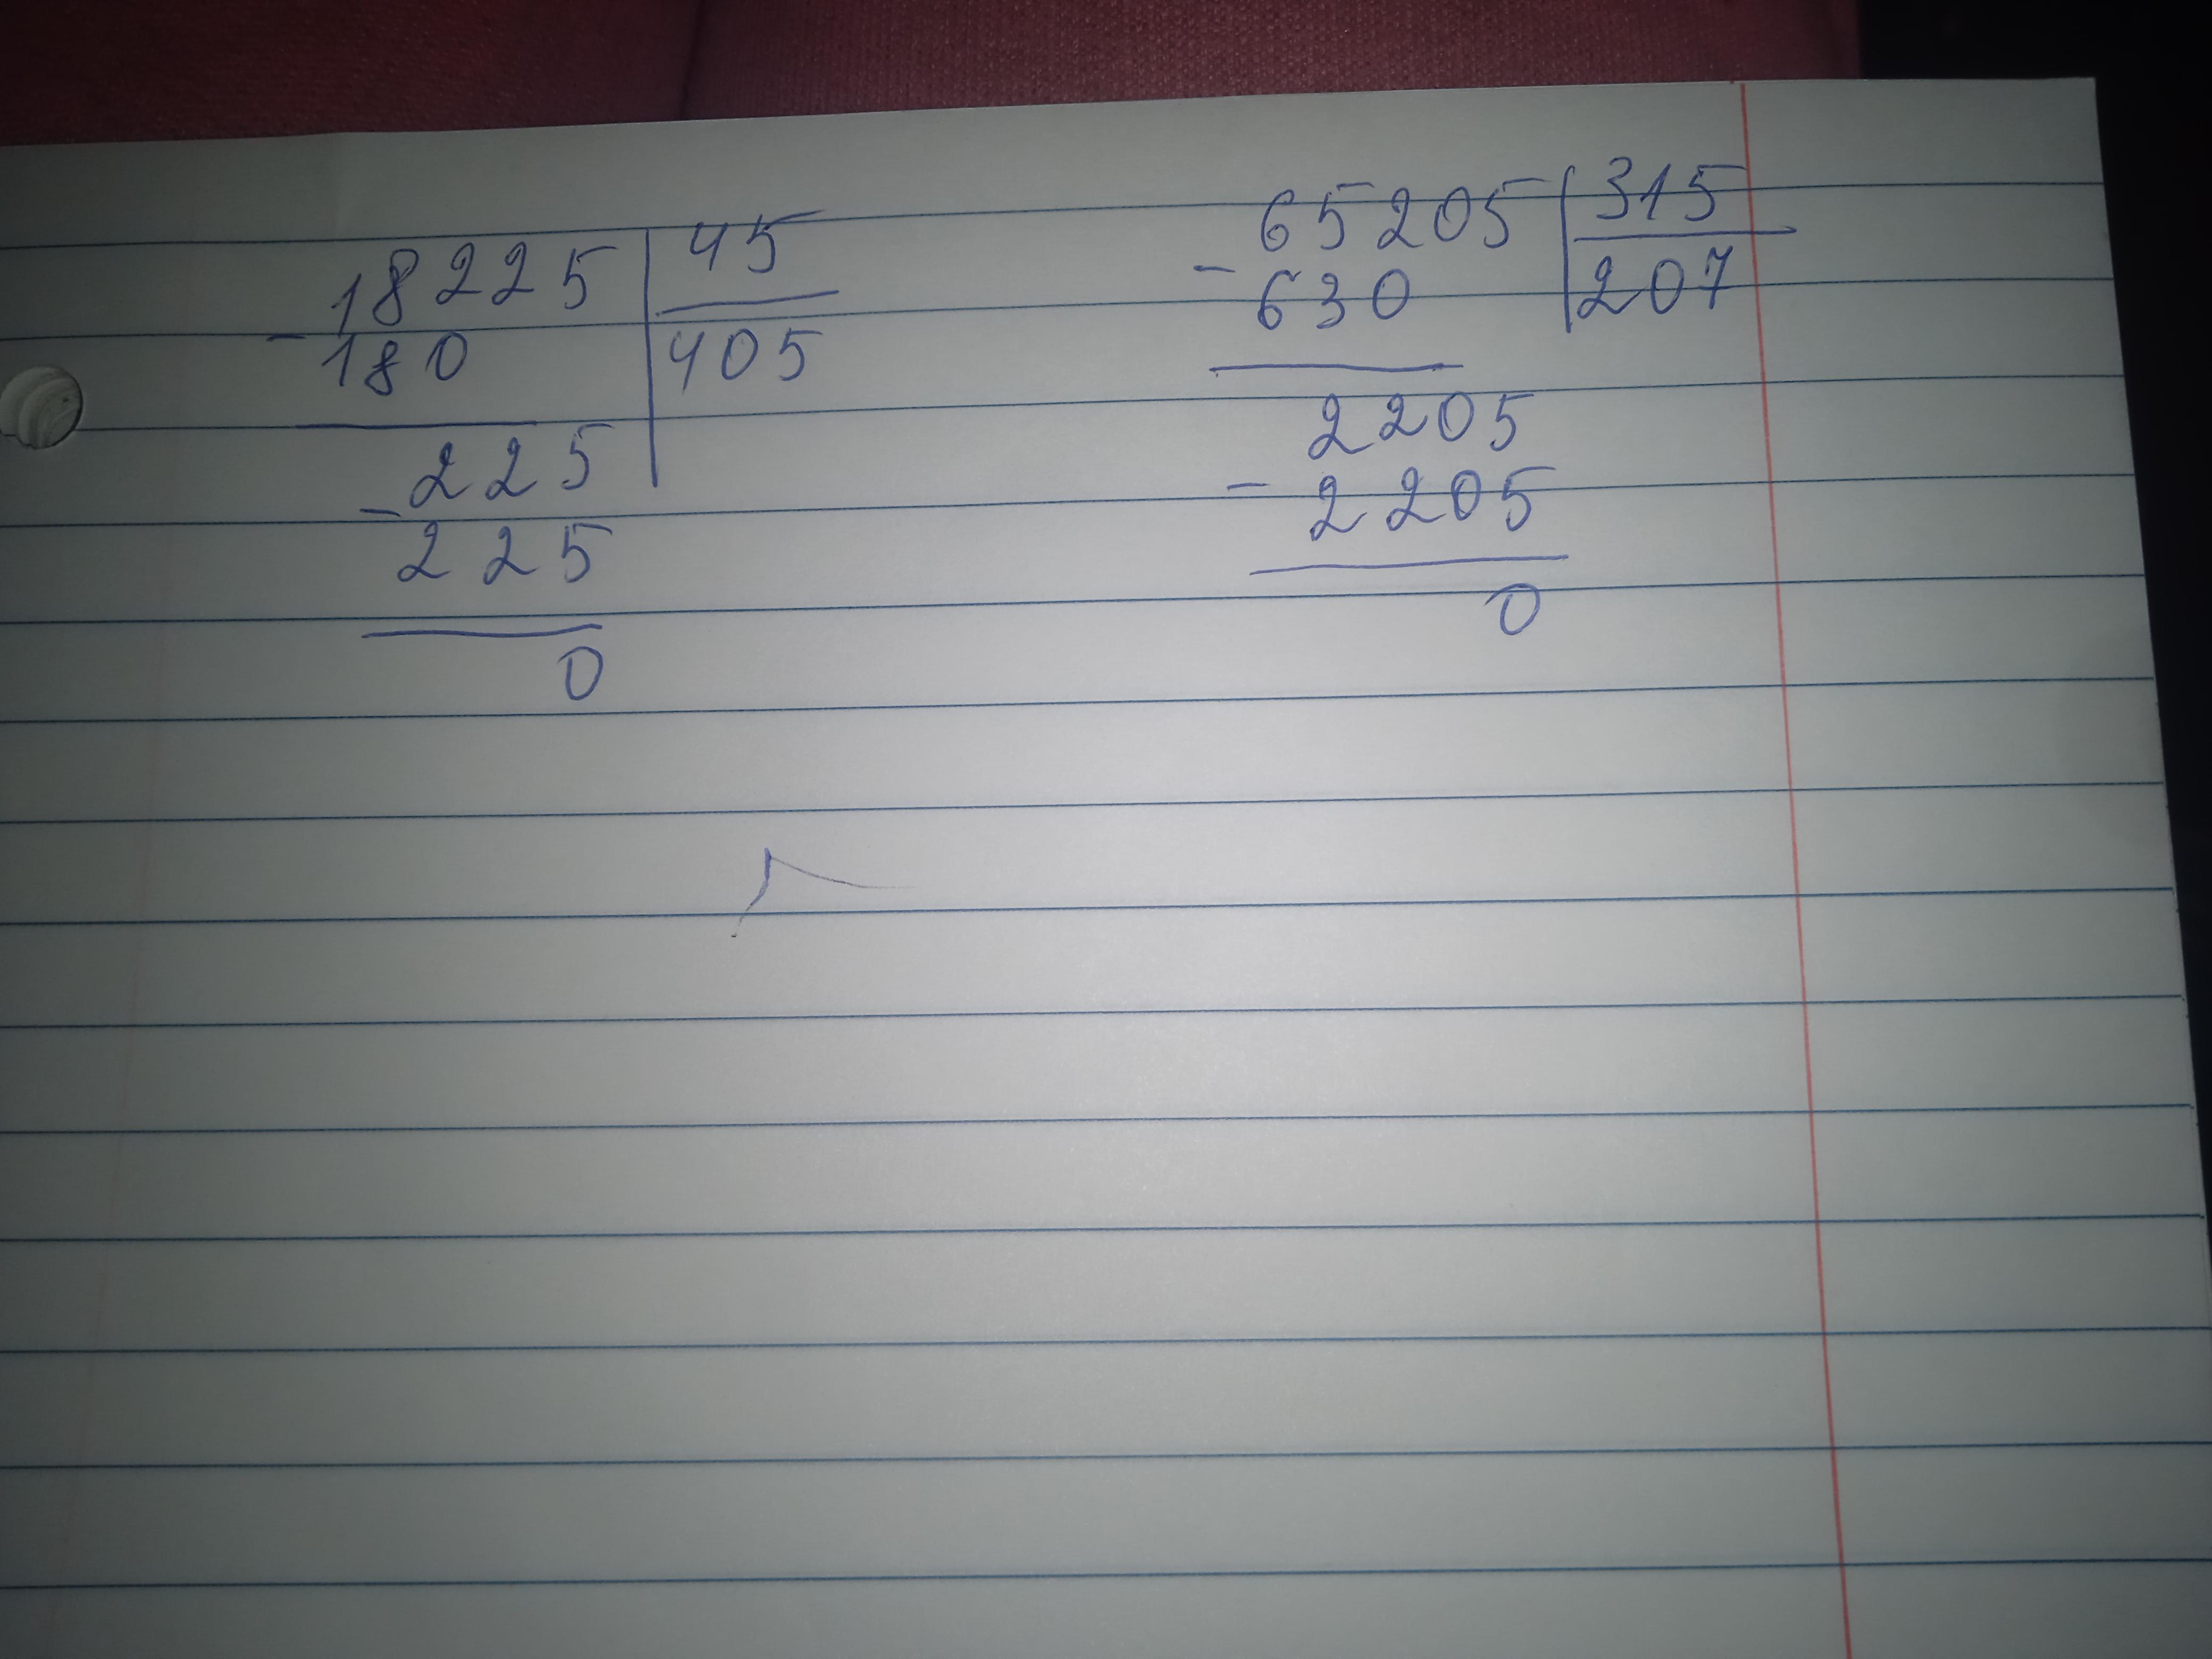 18225 | 45
- 180 | 405
225
- 225
0
65205 | 315
- 630 | 207
2205
- 2205
0